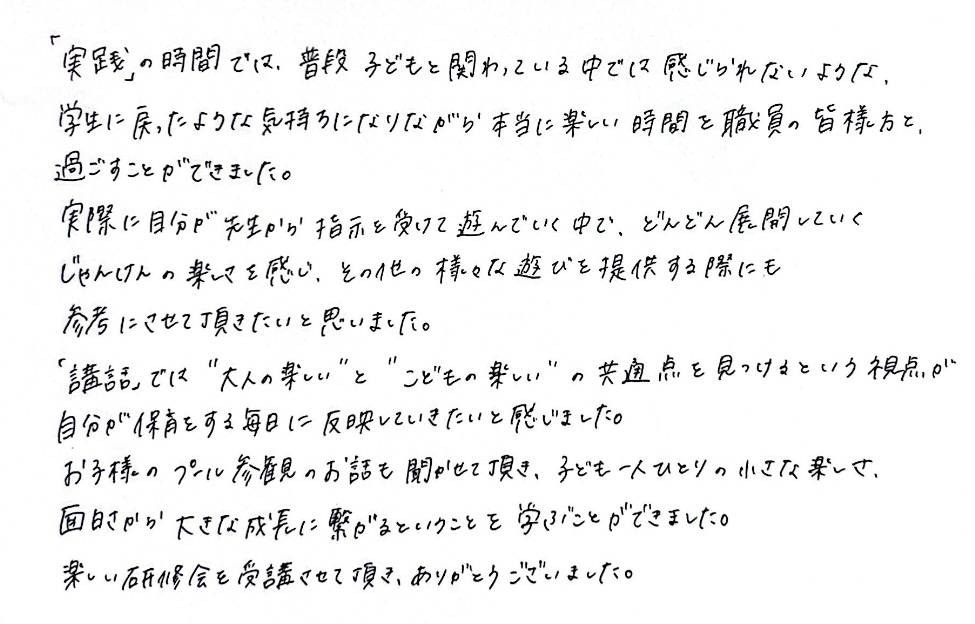 「実践」の時間では、普段 子どもと関わっている中では感じられないような、
学生に戻ったような気持ちになりながら本当に楽しい時間を職員の皆様方と、
過ごすことができました。
実際に自分が先生から指示を受けて遊んでいく中で、どんどん展開していく
じゃんけんの楽しさを感じ、その他の様々な遊びを提供する際にも
参考にさせて頂きたいと思いました。
「講話」では"大人の楽しい"と"こどもの楽しい"の共通点を見つけるという視点が
自分が保育をする毎日に反映していきたいと感じました。
お子様のプール参観のお話も聞かせて頂き、子ども一人ひとりの小さな楽しさ、
面白さから大きな成長に繋がるということを学ぶことができました。
楽しい研修会を受講させて頂き、ありがとうございました。